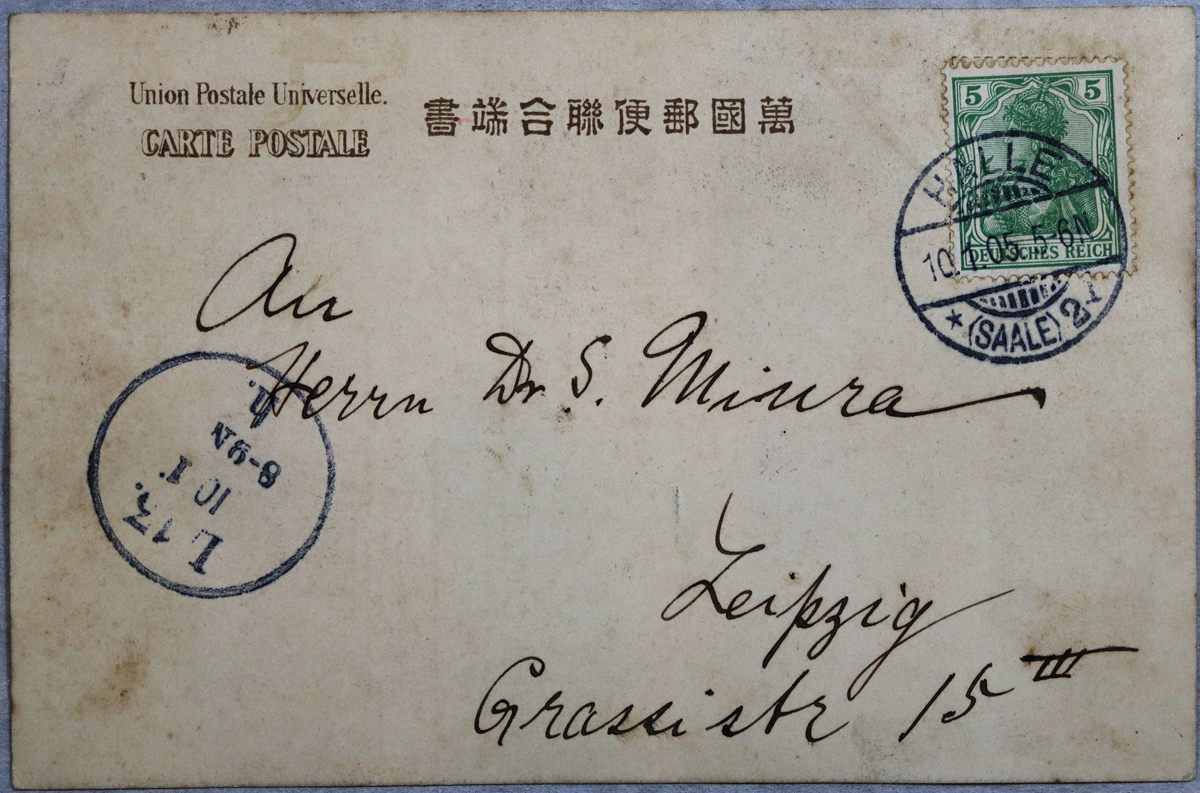 Union Postale Universelle.
CARTE POSTALE
萬國郵便聯合端書
5 5
DEUTSCHES REICH
HALLE
10.1.05. 5-6N
* (SAALE) 2 r
An
Herrn Dr S. Miura
Leipzig
Grassistr 15 III
L 13.
10 I.
8-9N